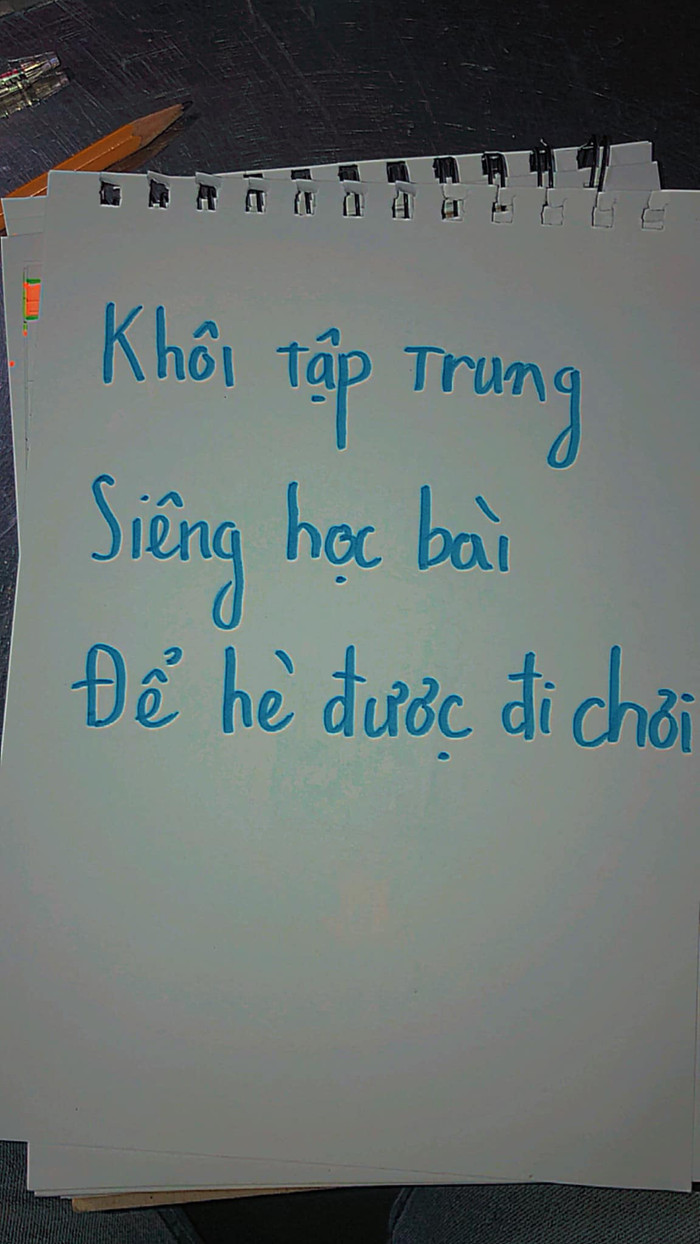 Khôi tập trung
Siêng học bài
Để hè được đi chơi